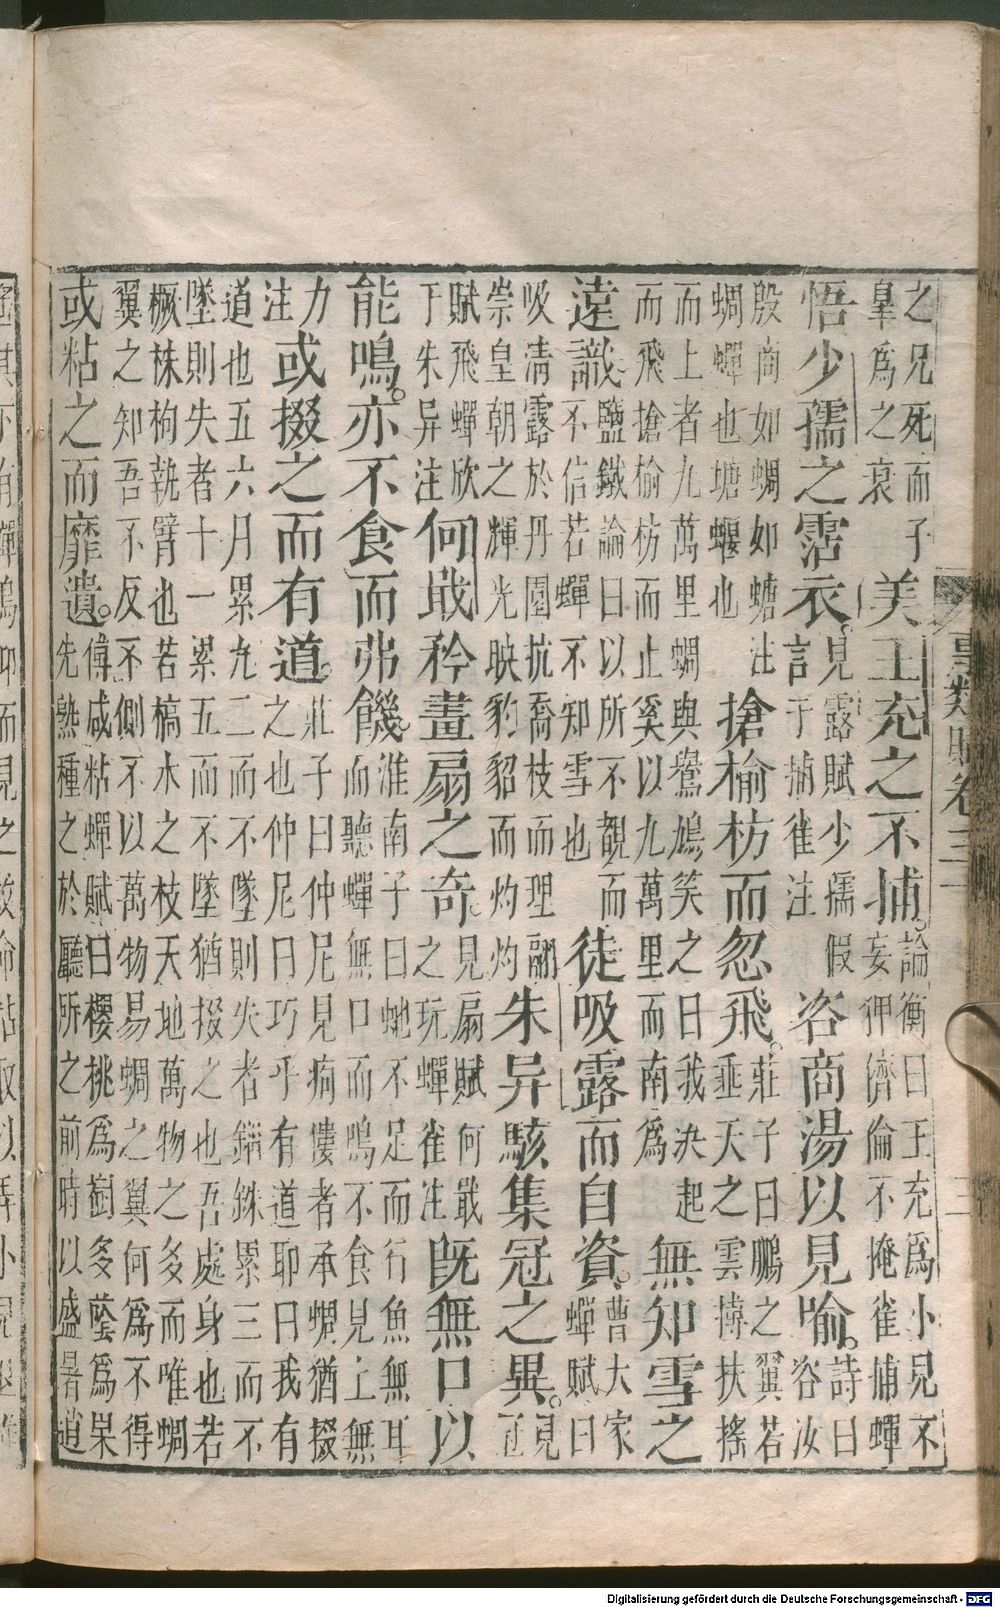 事類賦卷三十
二
之兄死而子
臯為之衰
美王充之不捕。
論衡曰王充為小兒不
妄狎儕倫不掩雀捕蟬
悟少孺之霑衣。
見露賦少孺假
言于捕雀注
咨商湯以見喻。
詩曰
咨汝
殷商如蜩如螗注
蜩蟬也螗蝘也
搶榆枋而忽飛。
莊子曰鵬之翼若
垂天之雲摶扶搖
而上者九萬里蜩與鷽鳩笑之曰我決起
而飛搶榆枋而止奚以九萬里而南為
無知雪之
遠識
鹽鐵論曰以所不覩而
不信若蟬不知雪也
徒吸露而自資。
曹大家
蟬賦曰
吸清露於丹園抗喬枝而理翮
崇皇朝之輝光映豹貂而灼灼
朱异駭集冠之異。
見
冠
賦飛蟬欣
于朱异注
何戢矜畫扇之奇。
見扇賦何戢
之玩蟬雀注
既無口以
能鳴。亦不食而弗饑。
淮南子曰虵不足而行魚無耳
而聽蟬無口而鳴不食見上無
力
注
或掇之而有道。
莊子曰仲尼見痀僂者承蜩猶掇
之也仲尼曰巧乎有道耶曰我有
道也五六月累九二而不墜則失者錙銖累三而不
墜則失者十一累五而不墜猶掇之也吾處身也若
橛株枸執臂也若槁木之枝天地萬物之多而唯蜩
翼之知吾不反不側不以萬物易蜩之翼何為不得
或粘之而靡遺。
傅咸粘蟬賦曰櫻桃為樹多蔭為杲
先熟種之於廳所之前時以盛暑逍
Digitalisierung gefördert durch die Deutsche Forschungsgemeinschaft - DFG